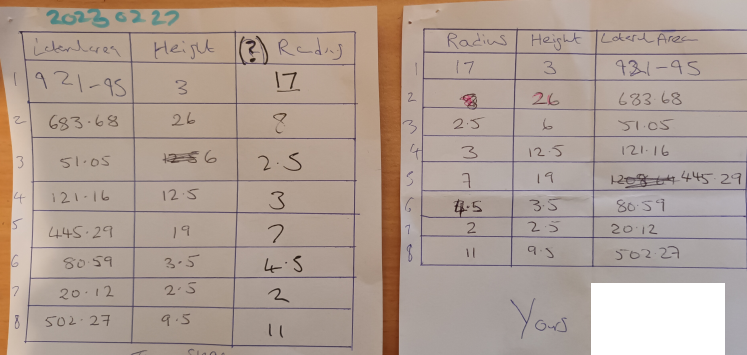 20230227
Lateral area Height (?) Radius
1 921-95 3 17
2 683.68 26 8
3 51.05 6 2.5
4 121.16 12.5 3
5 445.29 19 7
6 80.59 3.5 4.5
7 20.12 2.5 2
8 502.27 9.5 11
Radius Height Lateral Area
1 17 3 921-95
2 8 26 683.68
3 2.5 6 51.05
4 3 12.5 121.16
5 7 19 445.29
6 4.5 3.5 80.59
7 2 2.5 20.12
8 11 9.5 502.27
Yours